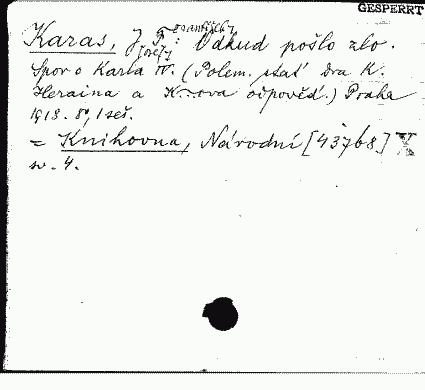 GESPERRT
Karas, J[osef] F[rantišek]: Odkud pošlo zlo.
Spor o Karla IV. (Polem. stať dra K.
Heraina a K...ova odpověď.) Praha
1913. 8°, 1 seš.
= Knihovna, Národní [43768] X
sv. 4.